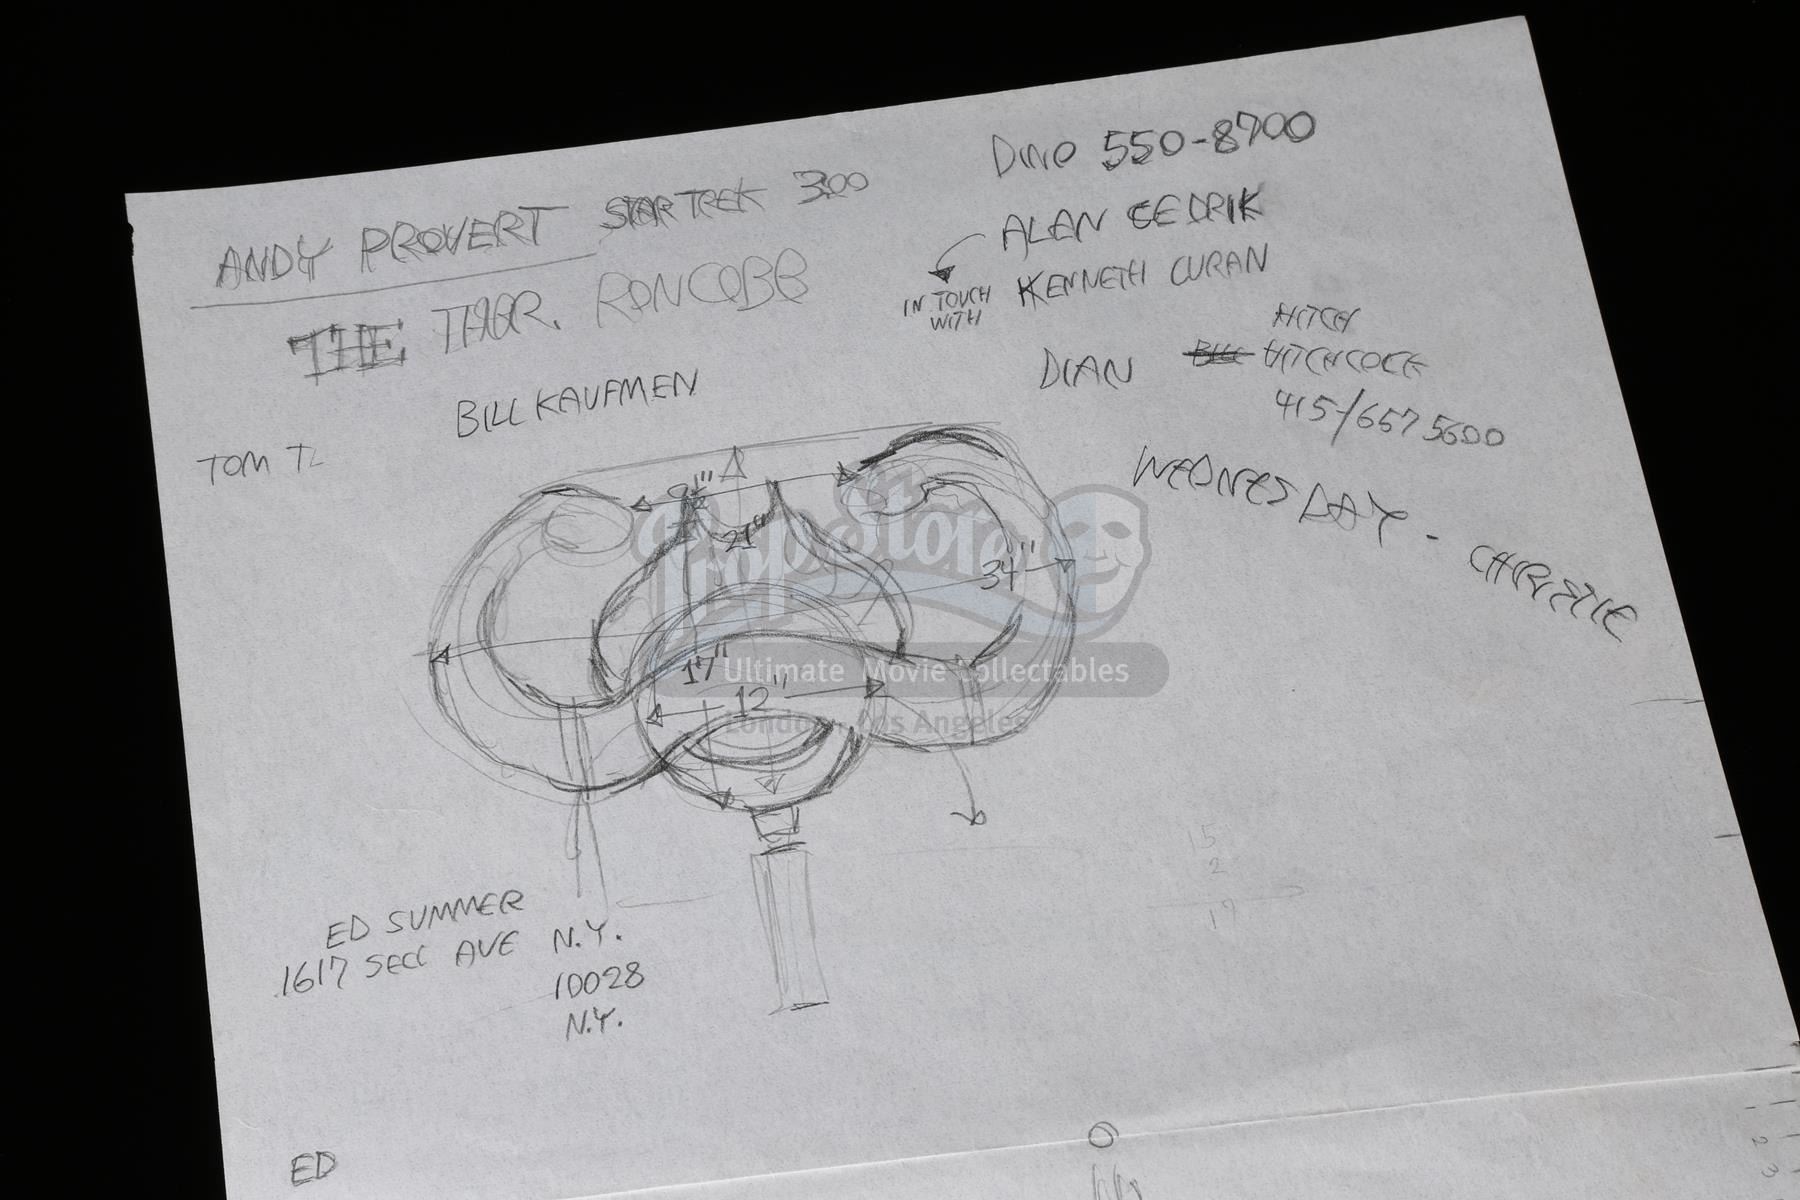 DINO 550-8700
ANDY PROVERT STAR TREK 300
ALAN CEDRIK
THE RON COBB
IN TOUCH
WITH
KENNETH CURAN
HITCH
DIAN HITCHCOCK
BILL KAUFMEN
415/657 5600
TOM
WEDNESDAY - CHRISTIE
9½"
21"
34"
17"
12"
PropStore
Ultimate Movie Collectables
London - Los Angeles
15
2
17
ED SUMMER
1617 SECC AVE N.Y.
10028
N.Y.
ED